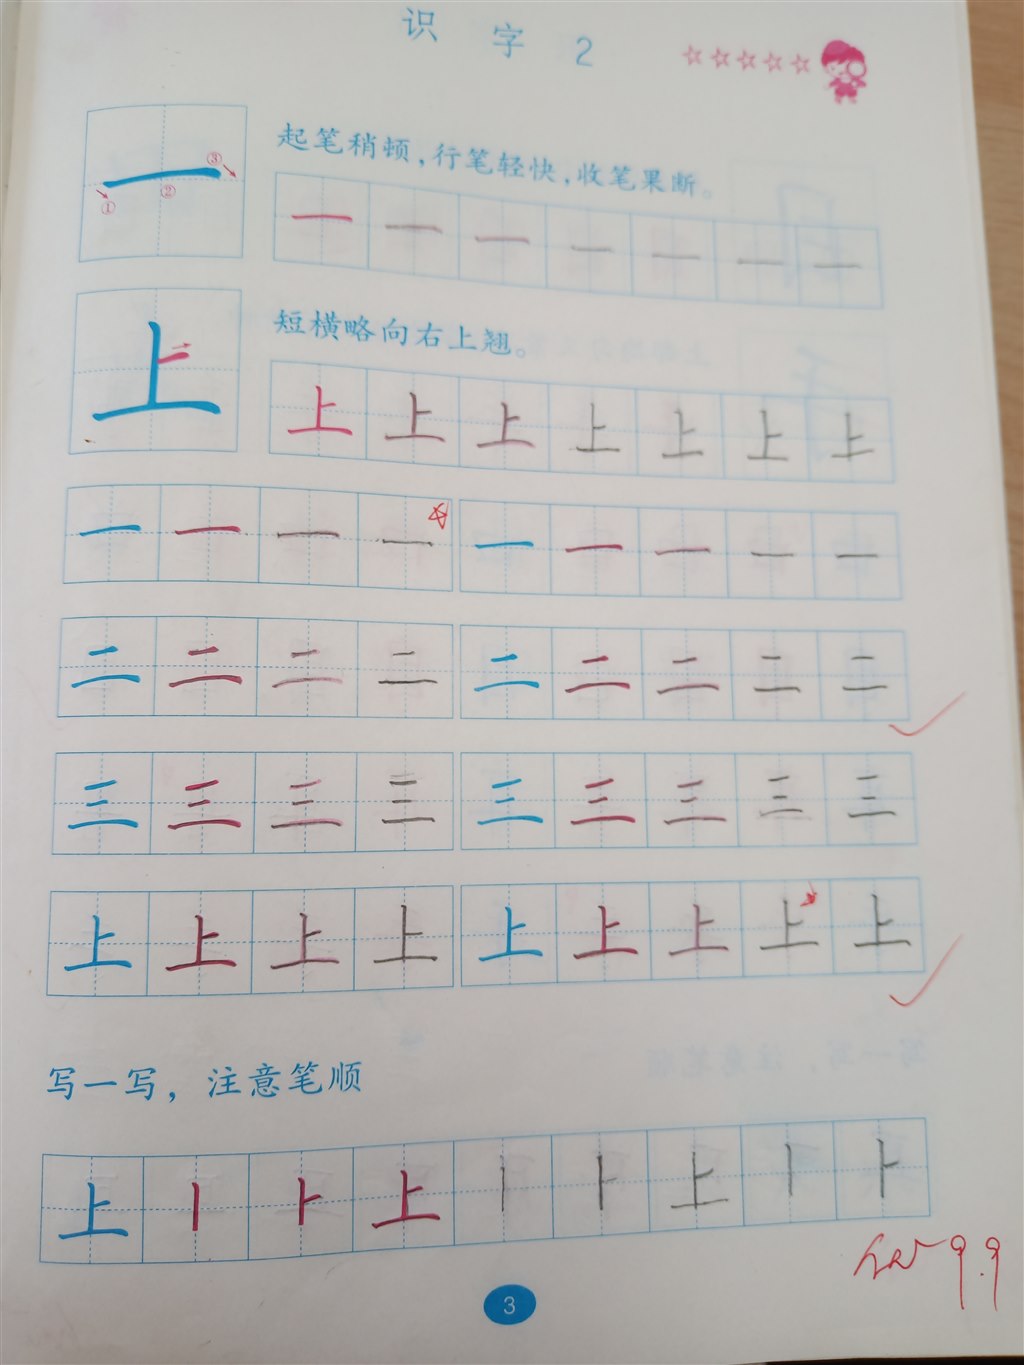 识 字 2
③
② 
①
一
起笔稍顿，行笔轻快，收笔果断。
一 一 一 一 一 一 一
上
短横略向右上翘。
上 上 上 上 上 上 上
一 一 一 一 一 一 一 一 一
二 二 二 二 二 二 二 二 二
三 三 三 三 三 三 三 三 三
上 上 上 上 上 上 上 上 上
写一写，注意笔顺
上 丨 ⺊ 上 丨 ⺊ 上 丨 ⺊
9.9
3